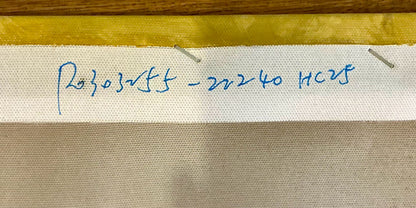 R0303255-22240 HC25